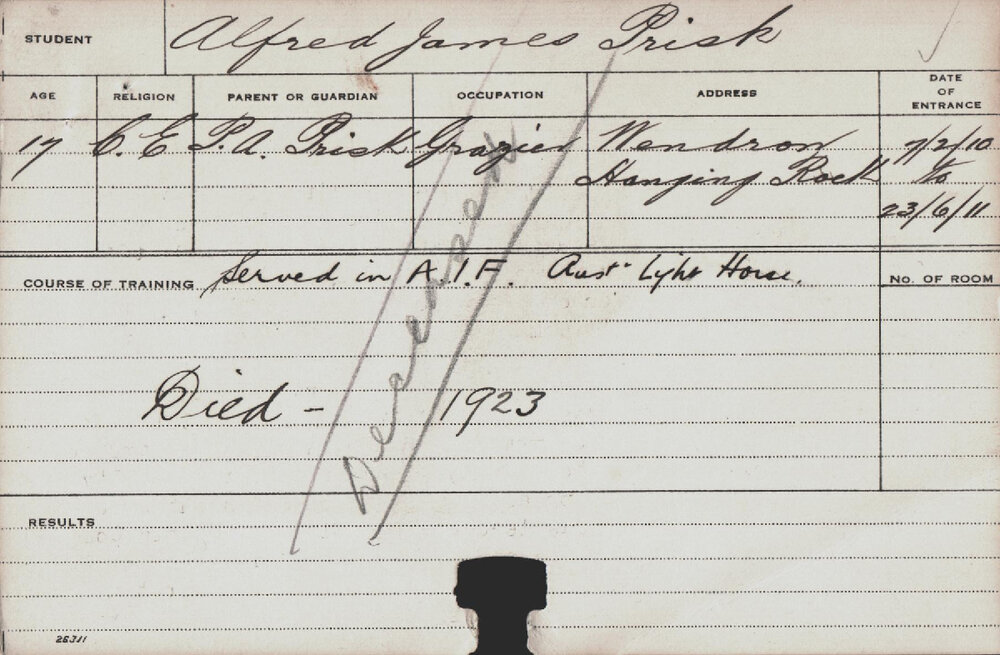 STUDENT Alfred James Prisk
AGE RELIGION PARENT OR GUARDIAN OCCUPATION ADDRESS DATE OF ENTRANCE
17 C. E P. A. Prisk Grazier Wendron 7/2/10
Hanging Rock to
23/6/11
COURSE OF TRAINING Served in A.I.F. Aust Light Horse. No. OF ROOM
Deceased
Died - 1923
RESULTS
26311